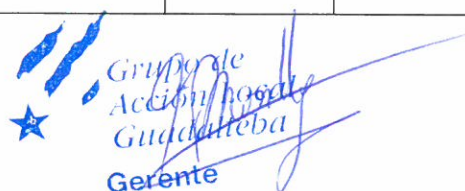 Grupo de
Acción Local
Guadalteba
Gerente